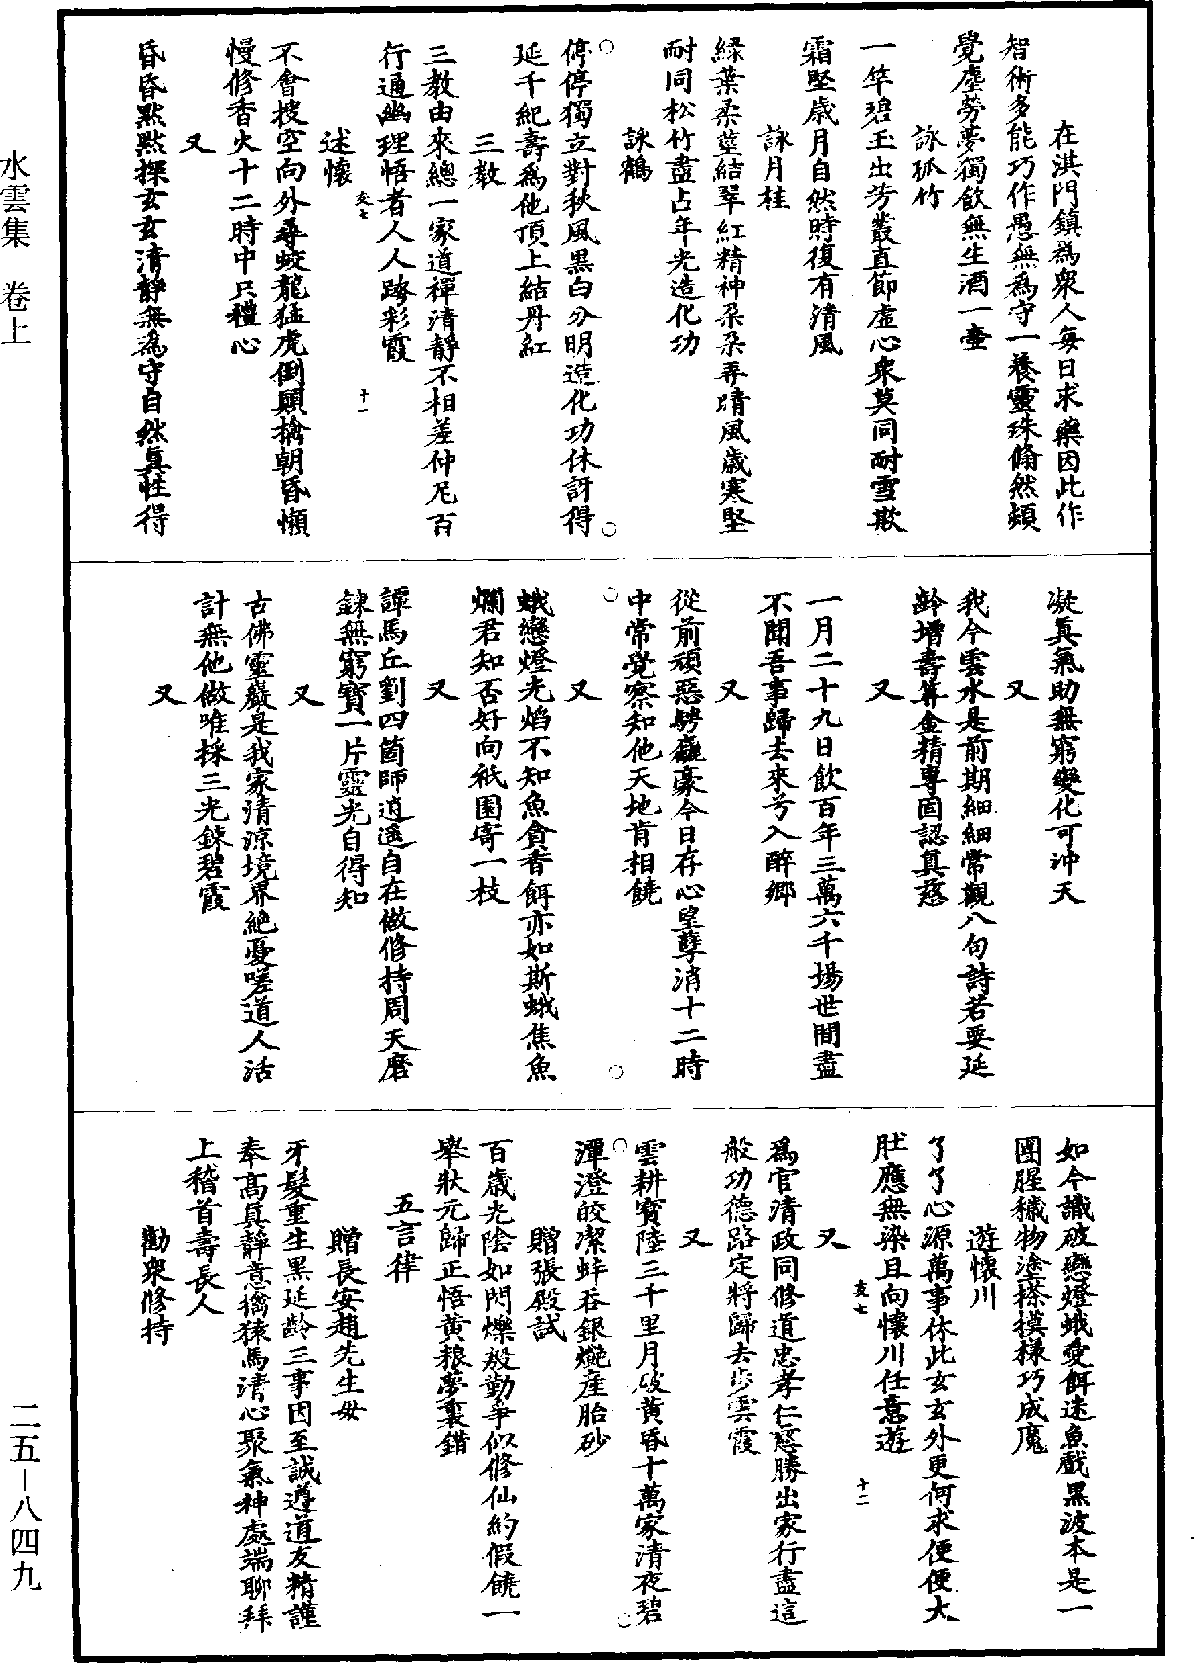 在淇門鎮為衆人每日求藥因此作
智術多能巧作愚無為守一養靈珠翛然頓
覺塵勞夢獨飲無生酒一壺
詠孤竹
一竿碧玉出芳叢直節虛心衆莫同耐雪欺
霜堅歲月自然時復有清風
詠月桂
綠葉柔莖結翠紅精神朶朶弄晴風歲寒堅
耐同松竹盡占年光造化功
詠鶴
停停獨立對秋風黑白分明造化功休訝得
延千紀壽為他頂上結丹紅
三教
三教由來總一家道禪清靜不相差仲尼百
行通幽理悟者人人跨彩霞
述懷
友七
十一
不會搜空向外尋蛟龍猛虎倒顛擒朝昏懶
慢修香火十二時中只禮心
又
昏昏默默探玄玄清靜無為守自然真性得
凝真氣助無窮變化可沖天
又
我今雲水是前期細細常觀八句詩若要延
齡增壽筭金精專固認真慈
又
一月二十九日飲百年三萬六千場世間盡
不聞吾事歸去來兮入醉鄉
又
從前頑惡騁麤豪今日存心望孽消十二時
中常覺察知他天地肯相饒
又
蛾戀燈光焰不知魚貪香餌亦如斯蛾焦魚
爛君知否好向祇園寄一枝
又
譚馬丘劉四箇師逍遙自在做修持周天磨
鍊無窮寶一片靈光自得知
又
古佛靈巖是我家清涼境界絕憂嗟道人活
計無他做唯採三光鍊碧霞
又
如今識破戀燈蛾愛餌迷魚戲黑波本是一
團腥穢物塗搽模樣巧成魔
遊懷川
了了心源萬事休此玄玄外更何求便便大
肚應無染且向懷川任意遊
友七
十二
又
為官清政同修道忠孝仁慈勝出家行盡這
般功德路定將歸去步雲霞
又
雲耕寶陸三千里月破黃昏十萬家清夜碧
潭澄皎潔蚌吞銀艷産胎砂
贈張殿試
百歲光陰如閃爍殷勤爭似修仙約假饒一
舉狀元歸正悟黃粮夢裏錯
五言律
贈長安趙先生母
牙髮重生黑延齡三事因至誠遵道友精謹
奉高真靜意擒猿馬清心聚氣神處端聊拜
上稽首壽長人
勸衆修持
水雲集　卷上
二五－八四九